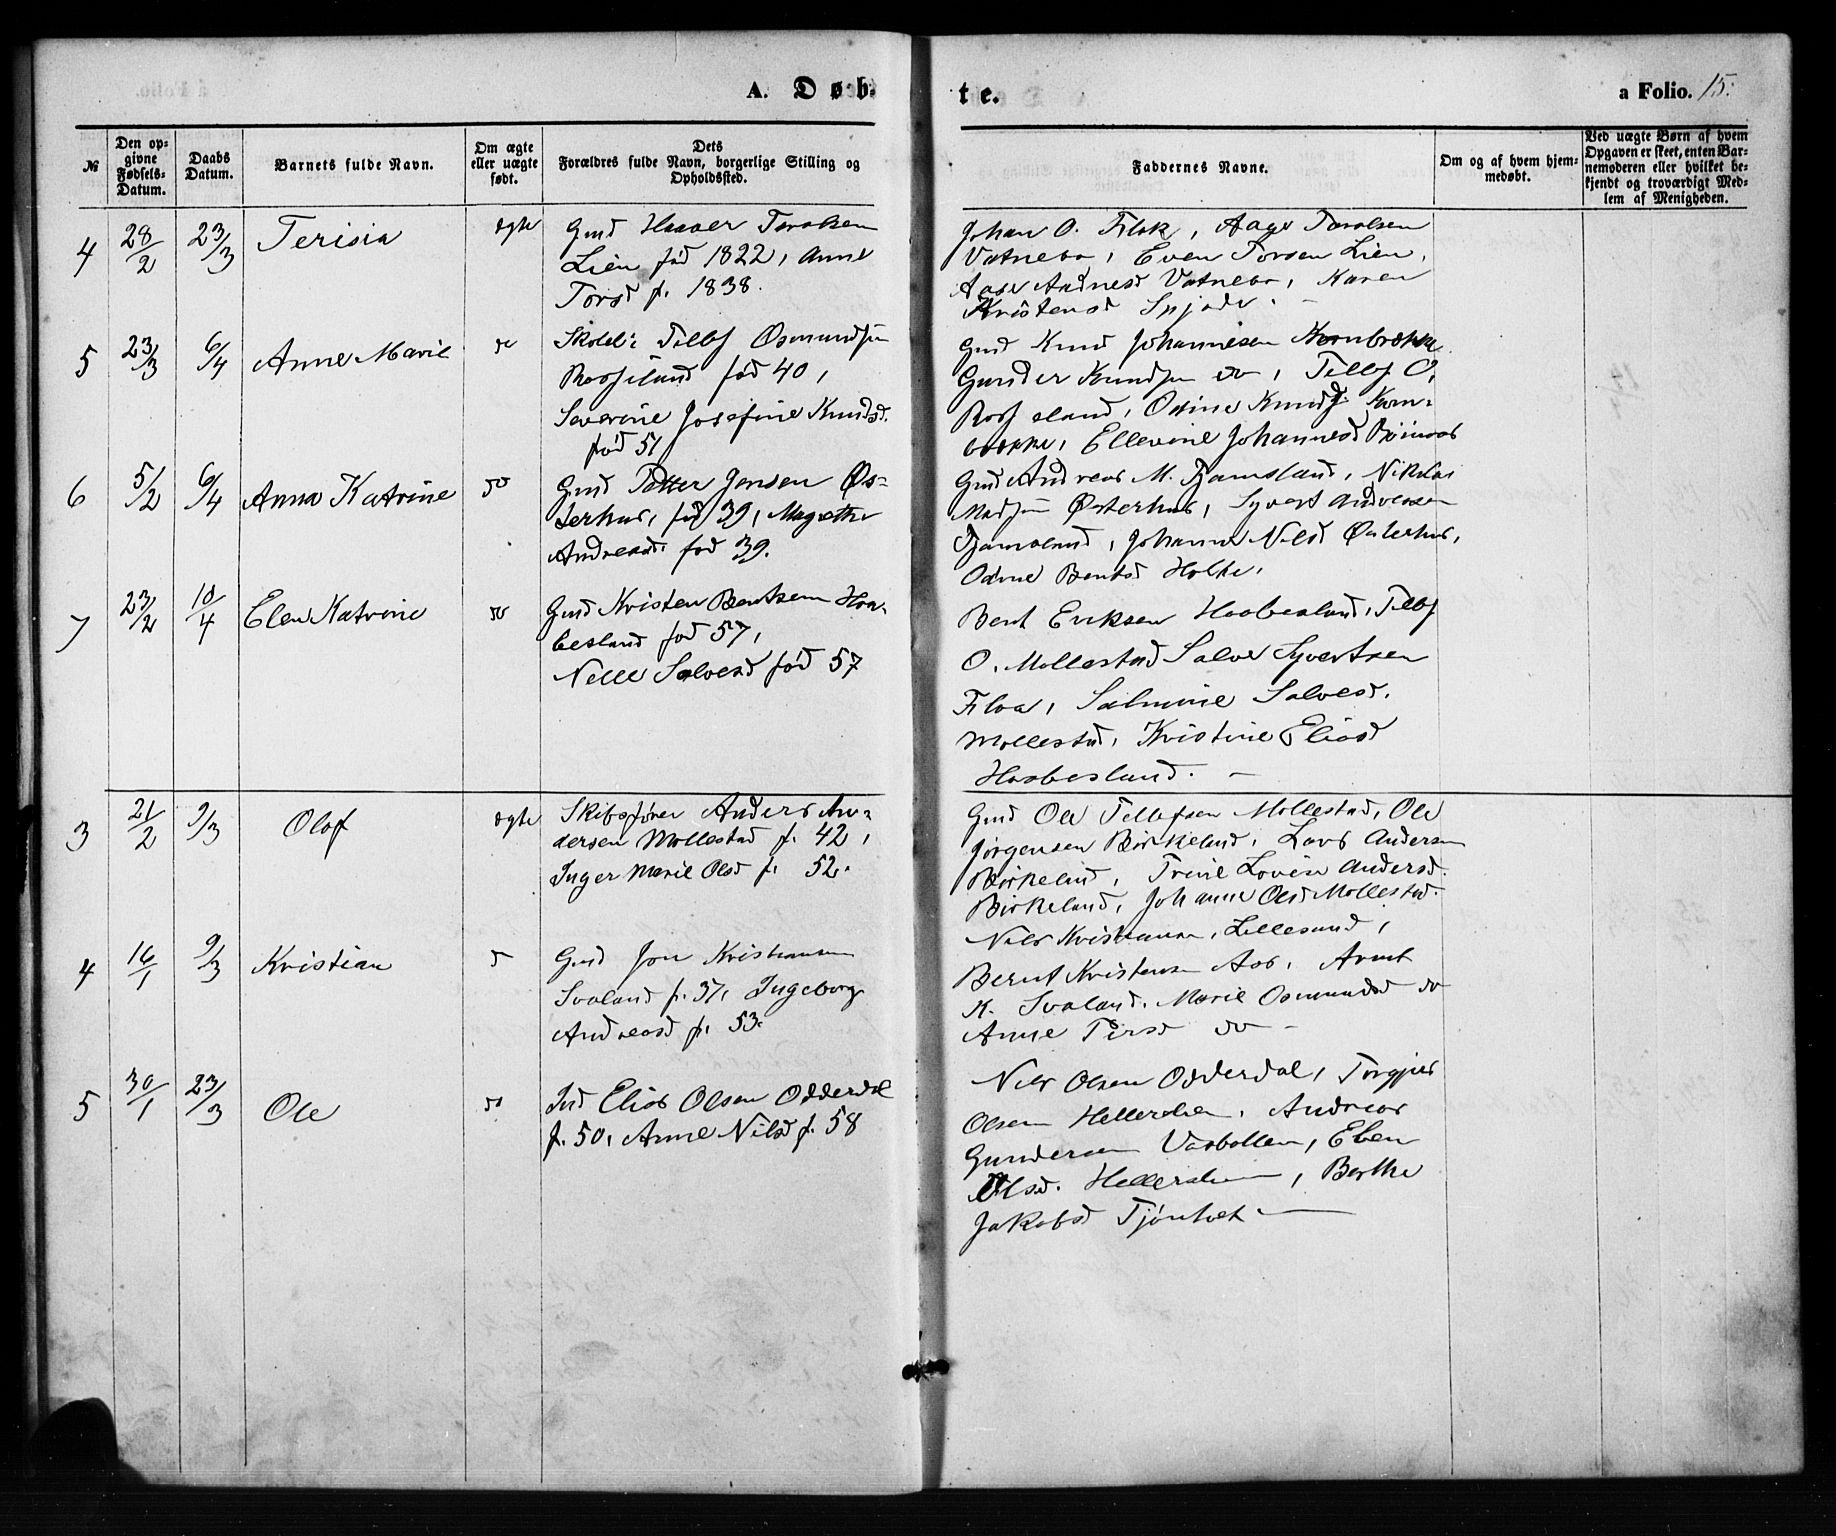 A. Døb-
te.
a Folio. 15.
№
Den op-
givne
Fødsels-
Datum.
Daabs
Datum.
Barnets fulde Navn.
Om ægte
eller uægte
født.
Dets
Forældres fulde Navn, borgerlige Stilling og
Opholdssted.
Faddernes Navne.
Om og af hvem hjem-
medøbt.
Ved uægte Børn af hvem
Opgaven er skeet, enten Bar-
nemoderen eller hvilket be-
kjendt og troværdigt Med-
lem af Menigheden.
4 28/2 23/3 Terisia ægte
Gmd Haaver Taralsen
Lien fød 1822, Anne
Torsd f. 1838.
Johan O. Flak, Aage Taralsen
Vatnebo, Even Torsen Lien,
Aase Andnesd Vatnebo, Karen
Kristensd
5 23/3 6/4 Anne Marie do
Skolel: Tellef Osmundsen
Rosseland fød 40,
Severine Josefine Knudsd.
fød 51
Gmd Knud Johannesen Kornbrække
Gunder Knudsen do, Tellef O,
Rosseland, Osine Knudsd Korn-
brække, Ellevine Johannesd
6 5/2 6/4 Anna Katrine do
Gmd Petter Jensen Øs-
terhus, fød 39, Magrethe
Andreasd. fød 39.
Gmd Andreas M. Tjamsland, Nikolai
Madsen Østerhus, Syvert Andreasen
Tjamsland, Johanne Nilsd Østerhus,
Odine Bentsd Holte,
7 23/2 10/4 Elen Katrine do
Gmd Kristen Bentsen Haa-
besland fød 57,
Nelle Salvesd fød 57
Bent Eriksen Haabesland, Tellef
O. Mollestad Salve Syvertsen
Flaa, Salmine Salvesd.
Mollestad, Kristine Eliasd
Haabesland. -
3 21/2 9/3 Olaf ægte
Skibsfører Anders An-
dersen Mollestad f. 42,
Inger Marie Olsd f. 52.
Gmd Ole Tellefsen Mollestad, Ole
Jørgensen Birkeland, Lars Andersen
Birkeland, Trine Lovise Andersd.
Birkeland, Johanne Olsd Mollestad.
4 16/1 9/3 Kristian d
Gmd Jon Kristiansen
Svaland f. 37, Ingeborg
Andreasd f. 53.
Nils Kristiansen, Lillesand,
Bernt Kristensen Aas, Arent
K. Svaland. Marie Osmundsd do
Anne Tersd do -
5 30/1 23/3 Ole do
Ind Elias Olsen Odderdal
f. 50, Anne Nilsd f. 58
Nils Olsen Odderdal, Torgjus
Olsen Hellerslien, Andreas
Gundersen Vasbollen, Elen
Olsd. Hellerslien, Berthe
Jakobsd Tjøntvet -